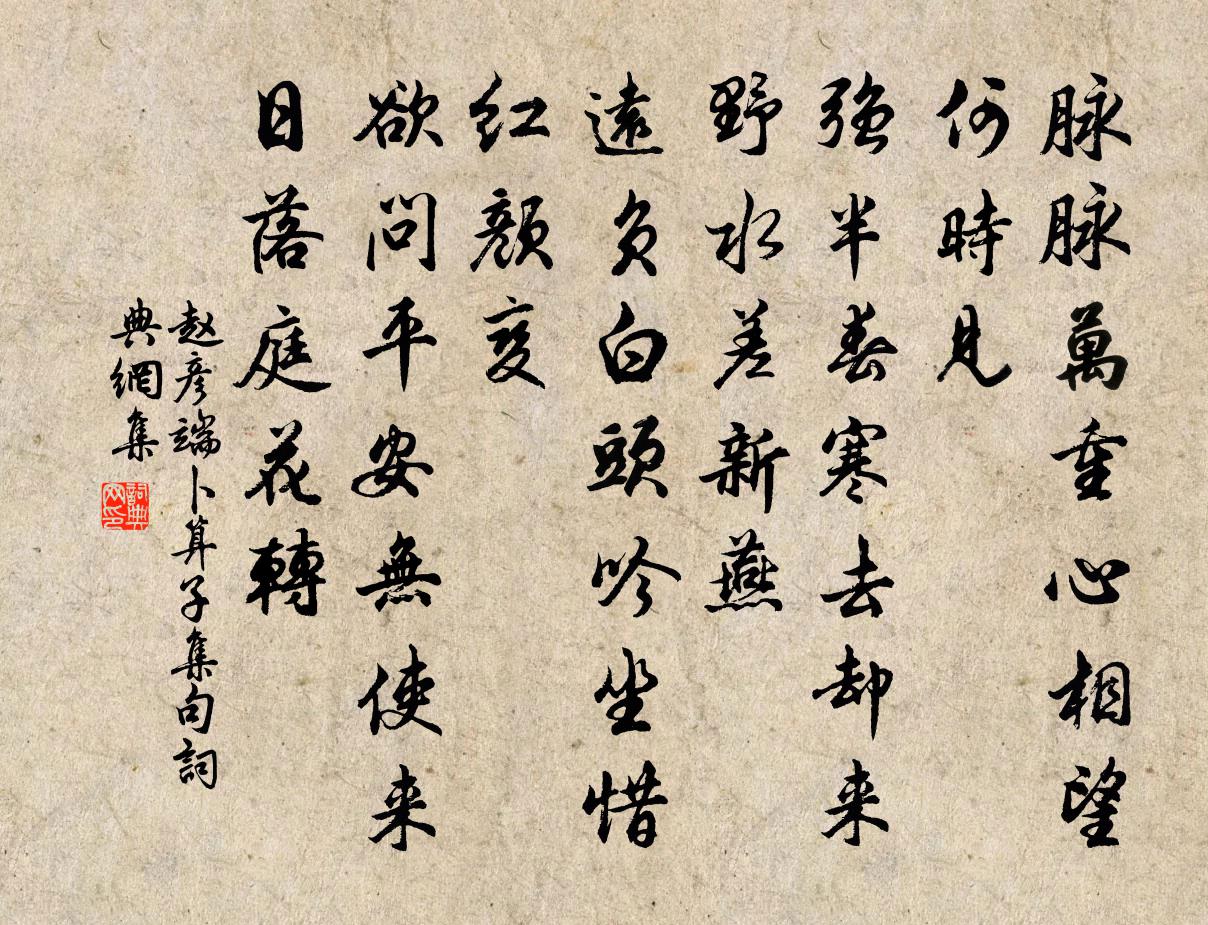 脉脉萬重心相望
何時見
强半春寒去却来
野水差新燕
遠負白頭吟坐惜
紅顏变
欲問平安無使来
日落庭花轉
赵彦端卜算子集句詞
典網集
詞典
网印